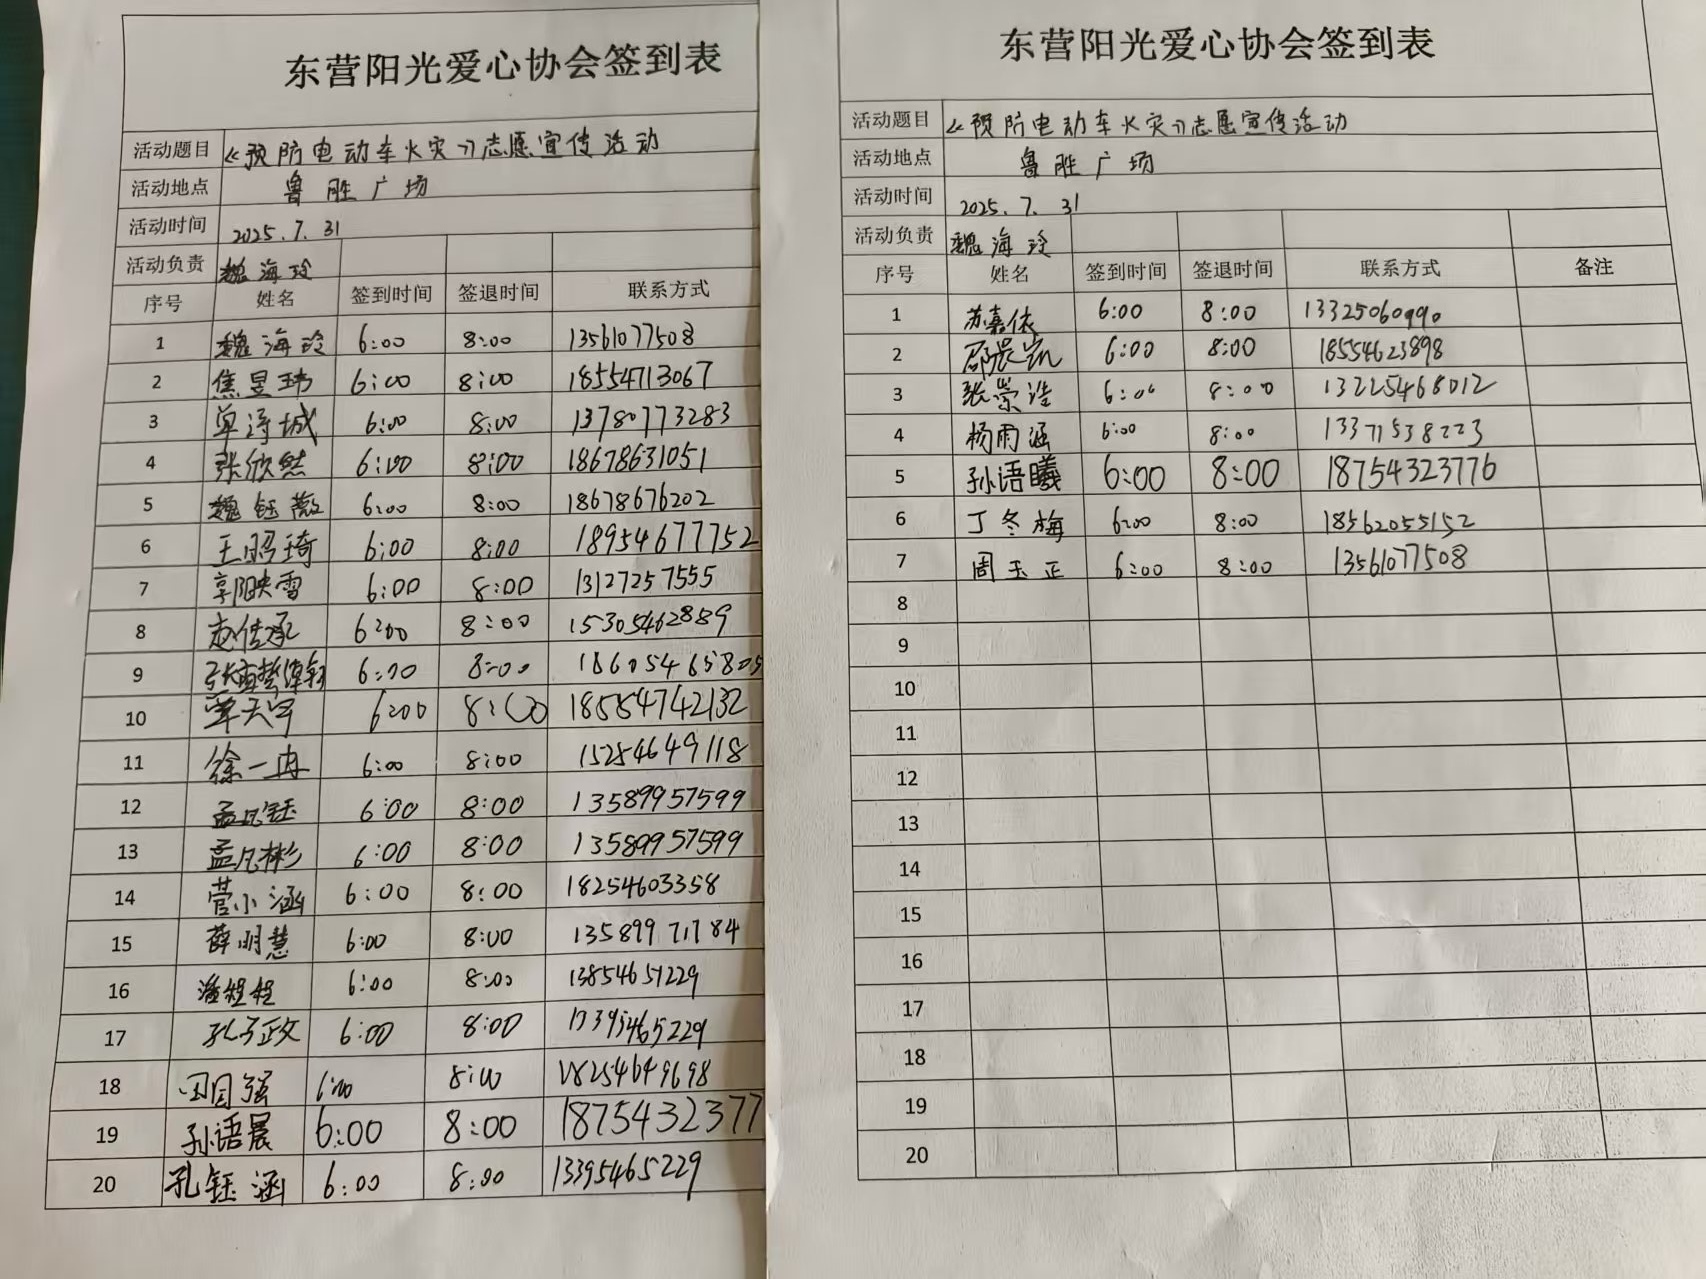 东营阳光爱心协会签到表
活动题目 《预防电动车火灾》志愿宣传活动
活动地点 鲁胜广场
活动时间 2025.7.31
活动负责 魏海玲
序号 姓名 签到时间 签退时间 联系方式
1 魏海玲 6:00 8:00 13561077508
2 焦昱玮 6:00 8:00 18554713067
3 单浔城 6:00 8:00 13780773283
4 张欣然 6:00 8:00 18678631051
5 魏钰薇 6:00 8:00 18678676202
6 王昭琦 6:00 8:00 18954677752
7 6:00 8:00 13127257555
8 赵传承 6:00 8:00 15305462889
9 6:00 8:00
10 单天宇 6:00 8:00 18554742132
11 徐一冉 6:00 8:00 15254649118
12 孟凡钰 6:00 8:00 13589957599
13 孟凡彬 6:00 8:00 13589957599
14 营小涵 6:00 8:00 18254603358
15 薛明慧 6:00 8:00 13589971784
16 潘程程 6:00 8:00 13854651229
17 孔子政 6:00 8:00 13395465229
18 田国强 6:00 8:00 18254649698
19 孙语晨 6:00 8:00 1875432377
20 孔钰涵 6:00 8:00 13395465229
东营阳光爱心协会签到表
活动题目 《预防电动车火灾》志愿宣传活动
活动地点 鲁胜广场
活动时间 2025.7.31
活动负责 魏海玲
序号 姓名 签到时间 签退时间 联系方式 备注
1 苏嘉依 6:00 8:00 13325060990
2 邵晨凯 6:00 8:00 18554623898
3 张崇浩 6:00 8:00 13225468012
4 杨雨涵 6:00 8:00 13371538223
5 孙语曦 6:00 8:00 18754323776
6 丁冬梅 6:00 8:00 18562055152
7 周玉正 6:00 8:00 13561077508
8
9
10
11
12
13
14
15
16
17
18
19
20